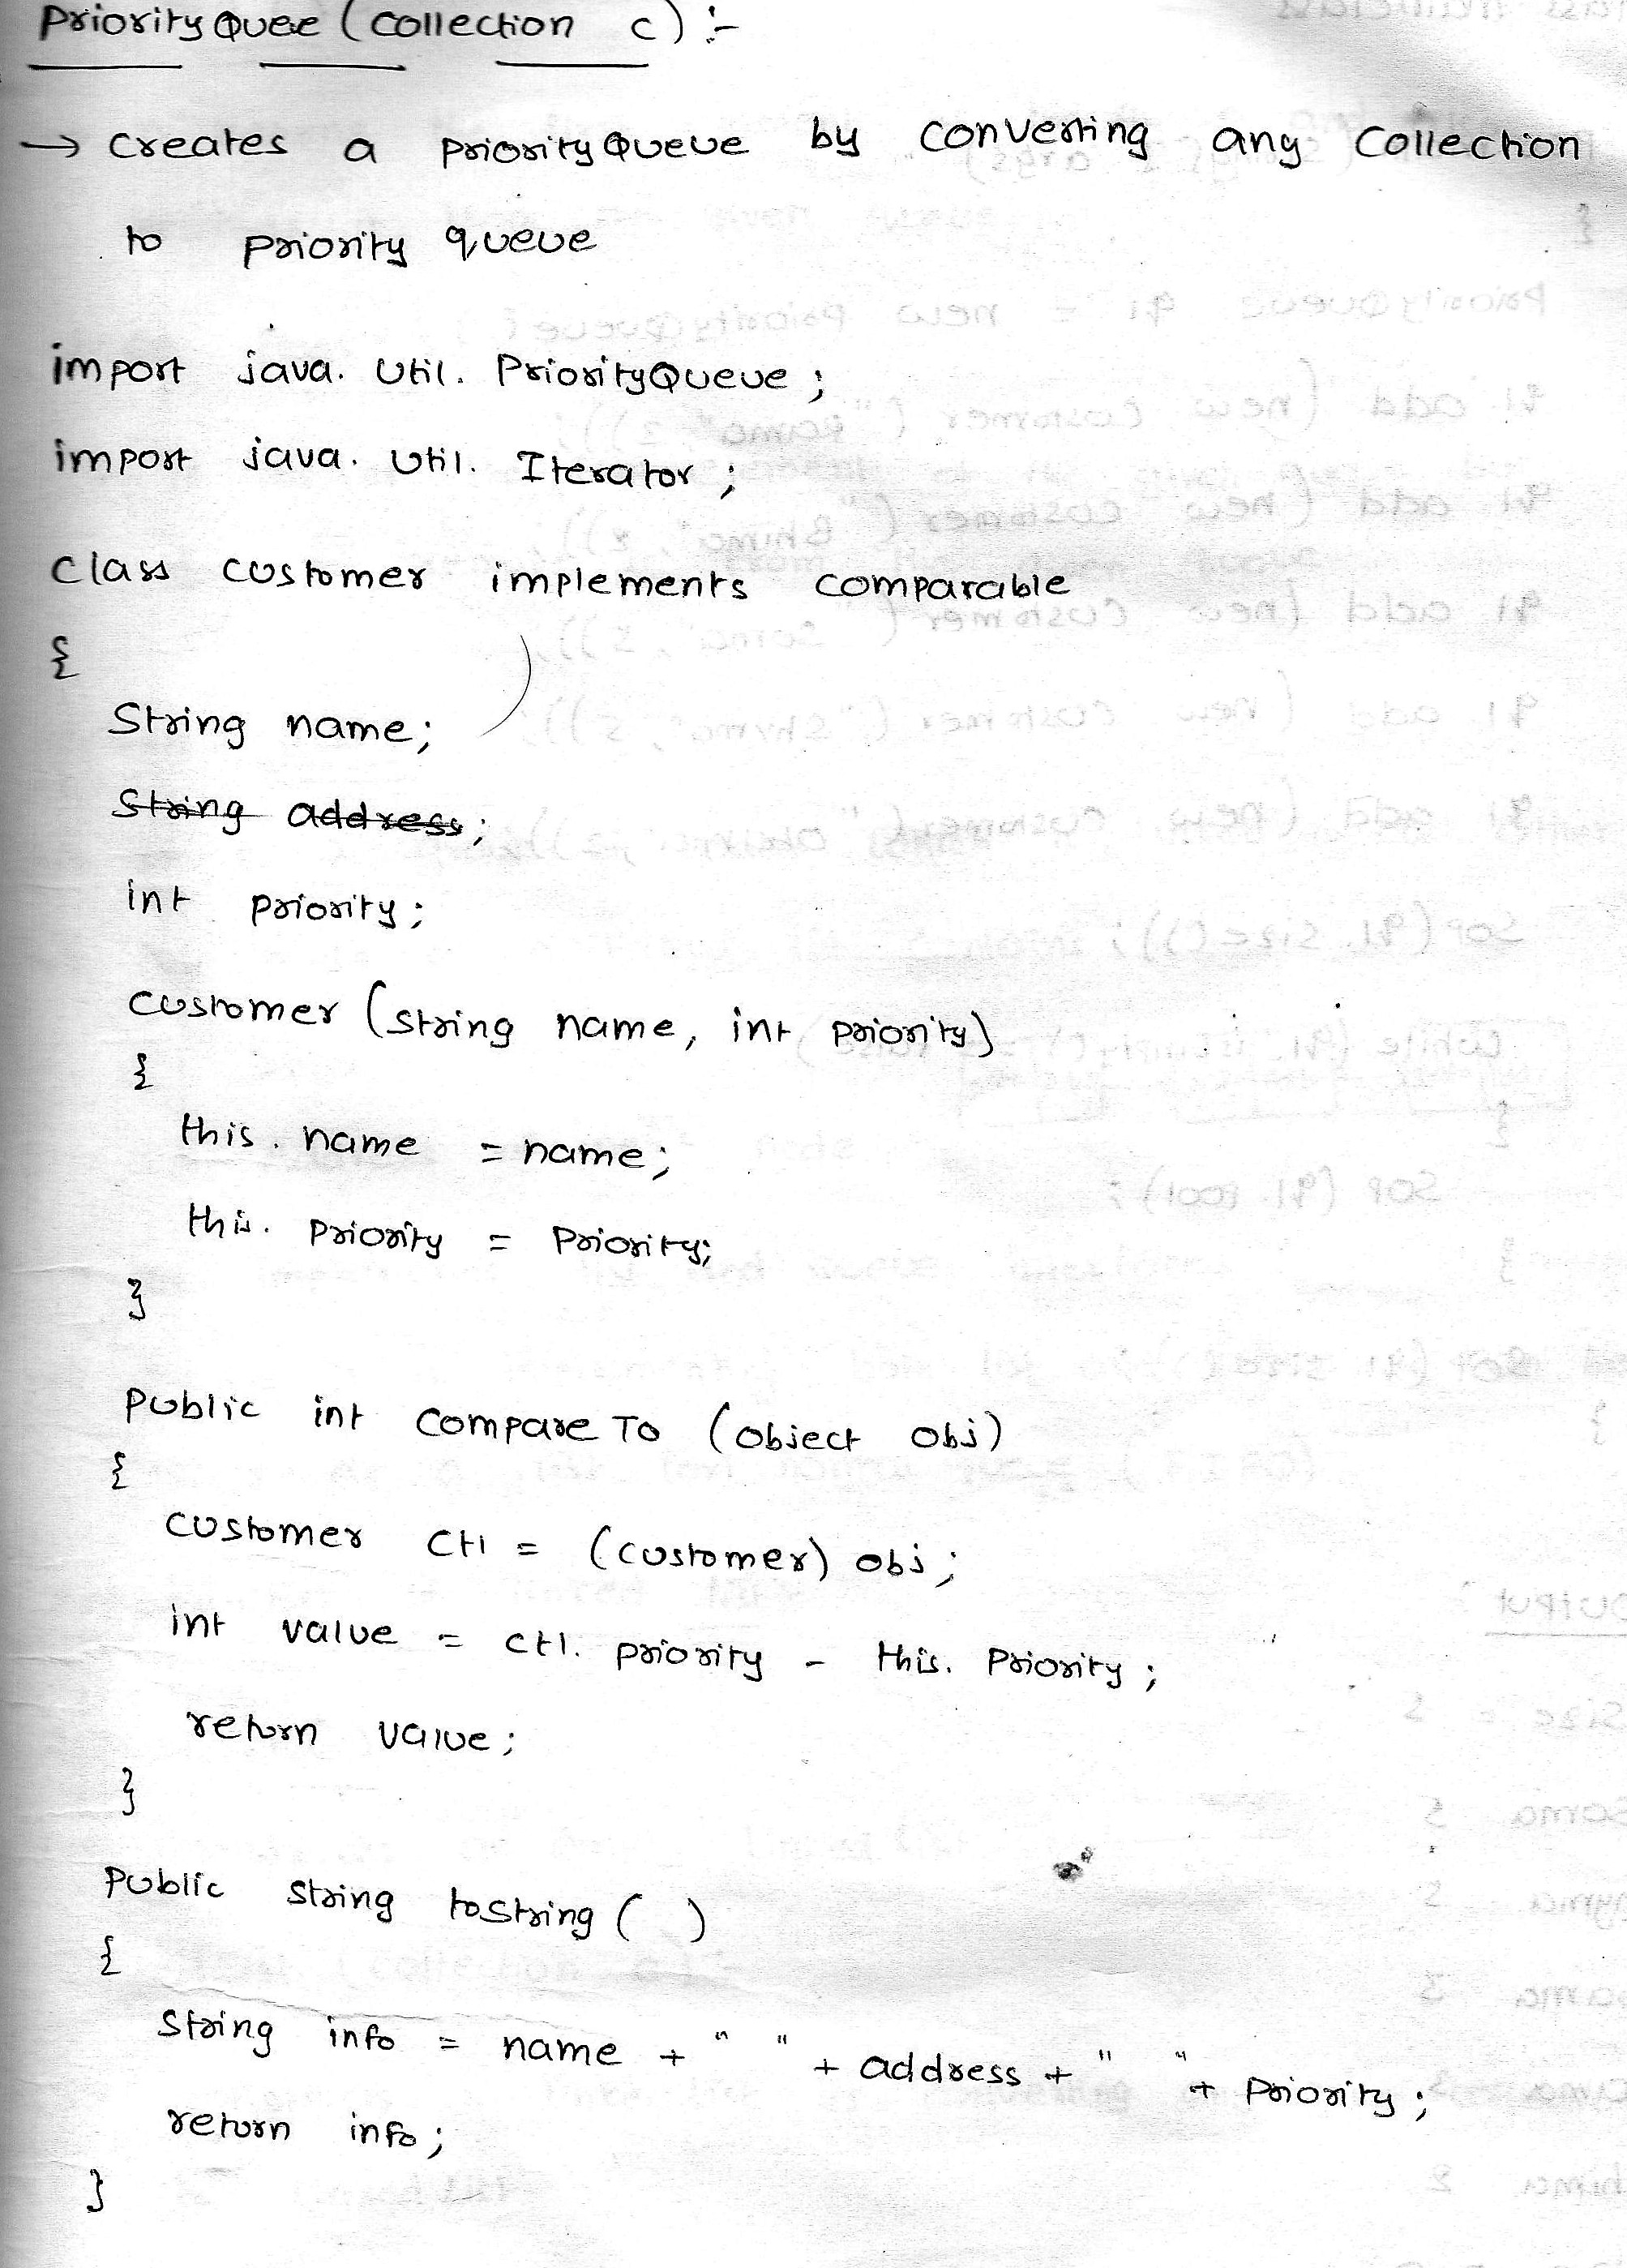 PriorityQuee (Collection c) :-
→ Creates a priorityQueue by converting any Collection
to priority queue
import java. util. PriorityQueue ;
import java. util. Iterator ;
class customer implements comparable
{
String name;
String address;
int priority;
customer (string name, int priority)
{
this. name = name;
this. priority = priority;
}
public int compareTo (object obj)
{
customer ct1 = (customer) obj ;
int value = ct1. priority - this. priority ;
return value ;
}
public string toString ( )
{
string info = name + " " + address + " " + priority ;
return info ;
}